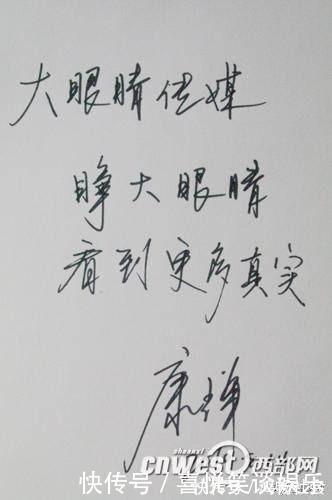 大眼睛传媒
睁大眼睛
看到更多真实
康辉
cnwest 西部网
快传号／喜悦笑谈娱乐